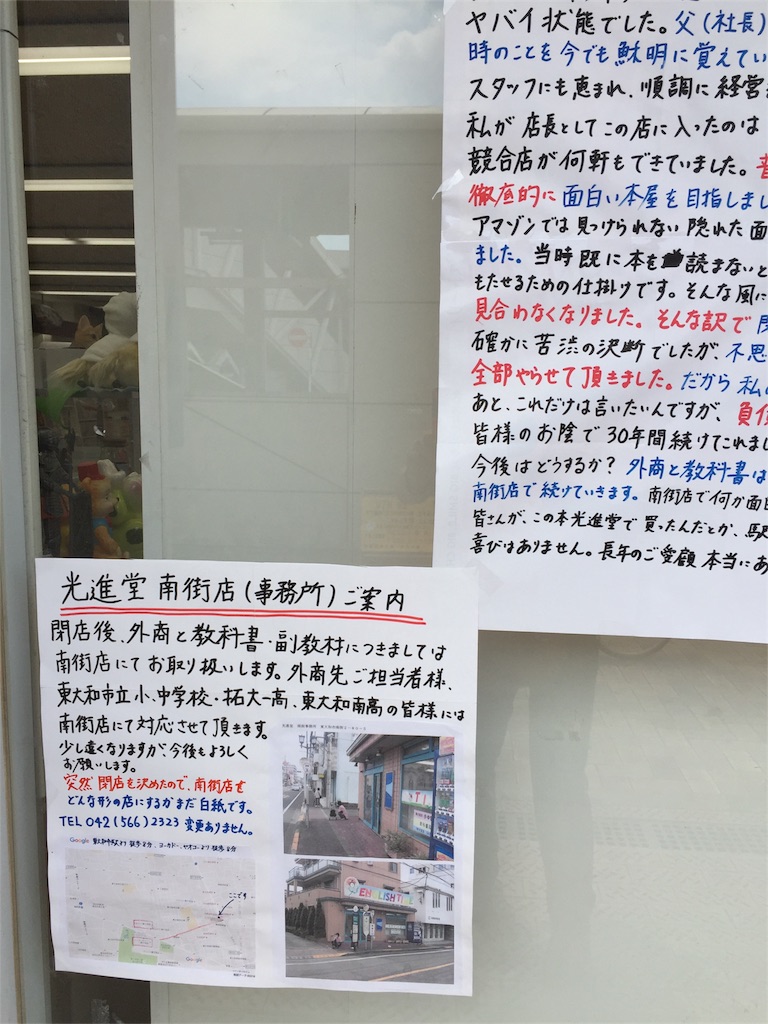 ヤバイ状態でした。父(社長)
時のことを今でも鮮明に覚えてい
スタッフにも恵まれ、順調に経営
私が店長としてこの店に入ったのは
競合店が何軒もできていました。
徹底的に面白い本屋を目指しまし
アマゾンでは見つけられない隠れた面
ました。当時既に本を読まないと
もたせるための仕掛けです。そんな風に
見合わなくなりました。そんな訳で
確かに苦渋の決断でしたが、不思
全部やらせて頂きました。だから私
あと、これだけは言いたいんですが、負
皆様のお陰で30年間続けてこれまし
今後はどうするか?外商と教科書は
南街店で続けていきます。南街店で何か面白
皆さんが、この本光進堂で買ったんだとか、駅
喜びはありません。長年のご愛顧本当にあ
光進堂 南街店(事務所)ご案内
閉店後、外商と教科書・副教材につきましては
南街店にてお取り扱いします。外商先ご担当者様、
東大和市立小、中学校・拓大一高、東大和南高の皆様には
南街店にて対応させて頂きます。
少し遠くなりますが、今後もよろしく
お願いします。
突然閉店を決めたので、南街店を
どんな形の店にするかまだ白紙です。
TEL 042(566)2323 変更ありません。
Google 東大和市駅より徒歩8分、ヨーカドー、ヤオコーより徒歩8分
ここです
Google
ENGLISH TIME